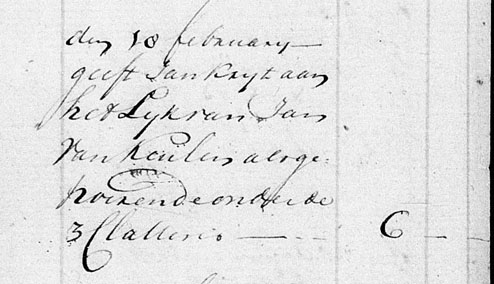 den 18 february
geeft Jan Kryt aan
het Lyk van Jan
van Keulen aerge-
hoorende onder de
3 Classis — 6 —